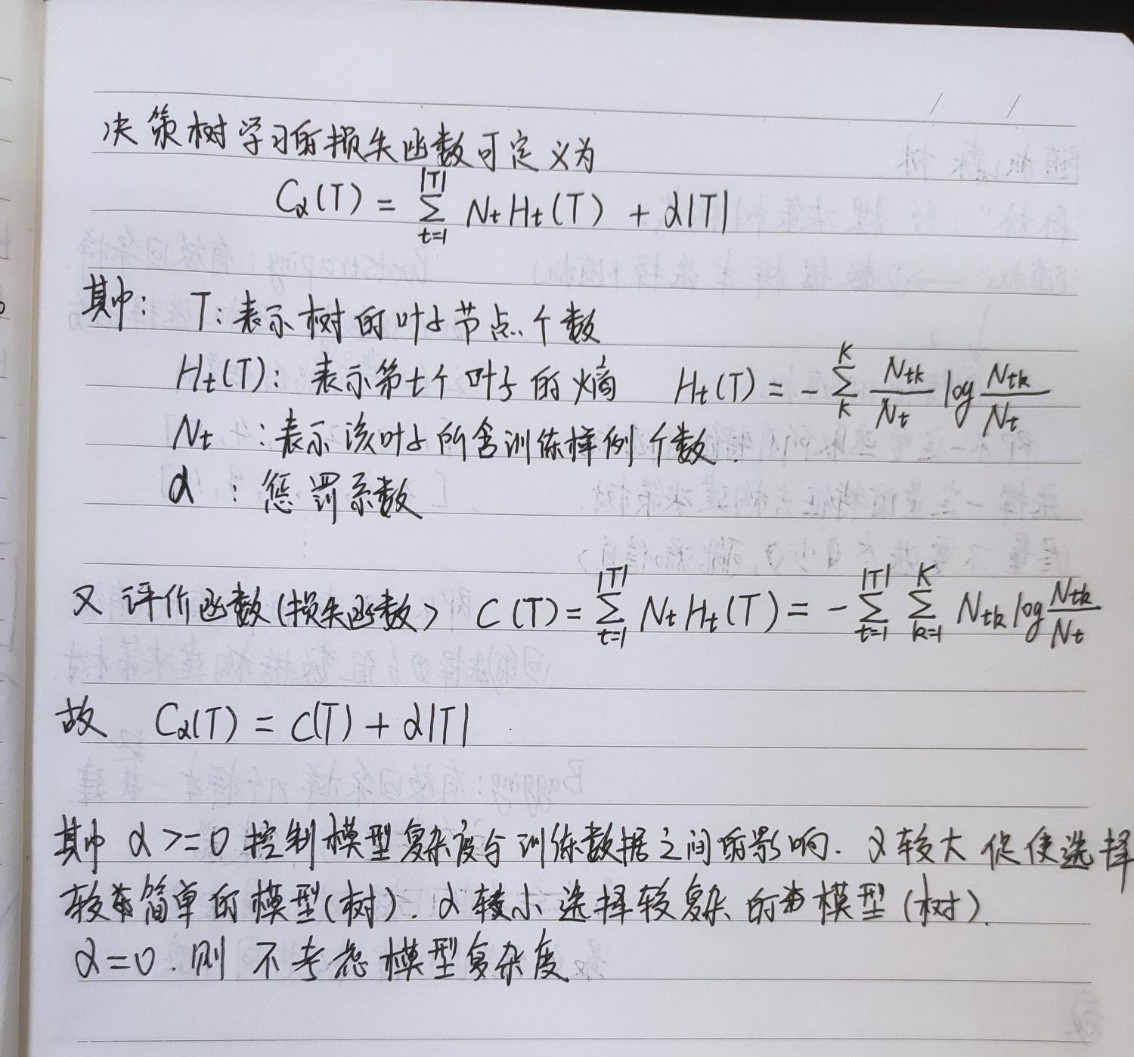 决策树学习的损失函数可定义为
Cα(T) = ∑_{t=1}^{|T|} Nt Ht(T) + α|T|
其中: T: 表示树的叶子节点个数
Ht(T): 表示第t个叶子的熵 Ht(T) = -∑_{K}^{K} Ntk/Nt log Ntk/Nt
Nt : 表示该叶子所含训练样例个数.
α : 惩罚系数
又 评价函数(损失函数) C(T) = ∑_{t=1}^{|T|} Nt Ht(T) = -∑_{t=1}^{|T|} ∑_{k=1}^{K} Ntk log Ntk/Nt
故 Cα(T) = C(T) + α|T|
其中 α >= 0 控制模型复杂度与训练数据之间的影响. α较大促使选择
较简单的模型(树). α较小选择较复杂的模型(树).
α=0. 则 不考虑模型复杂度